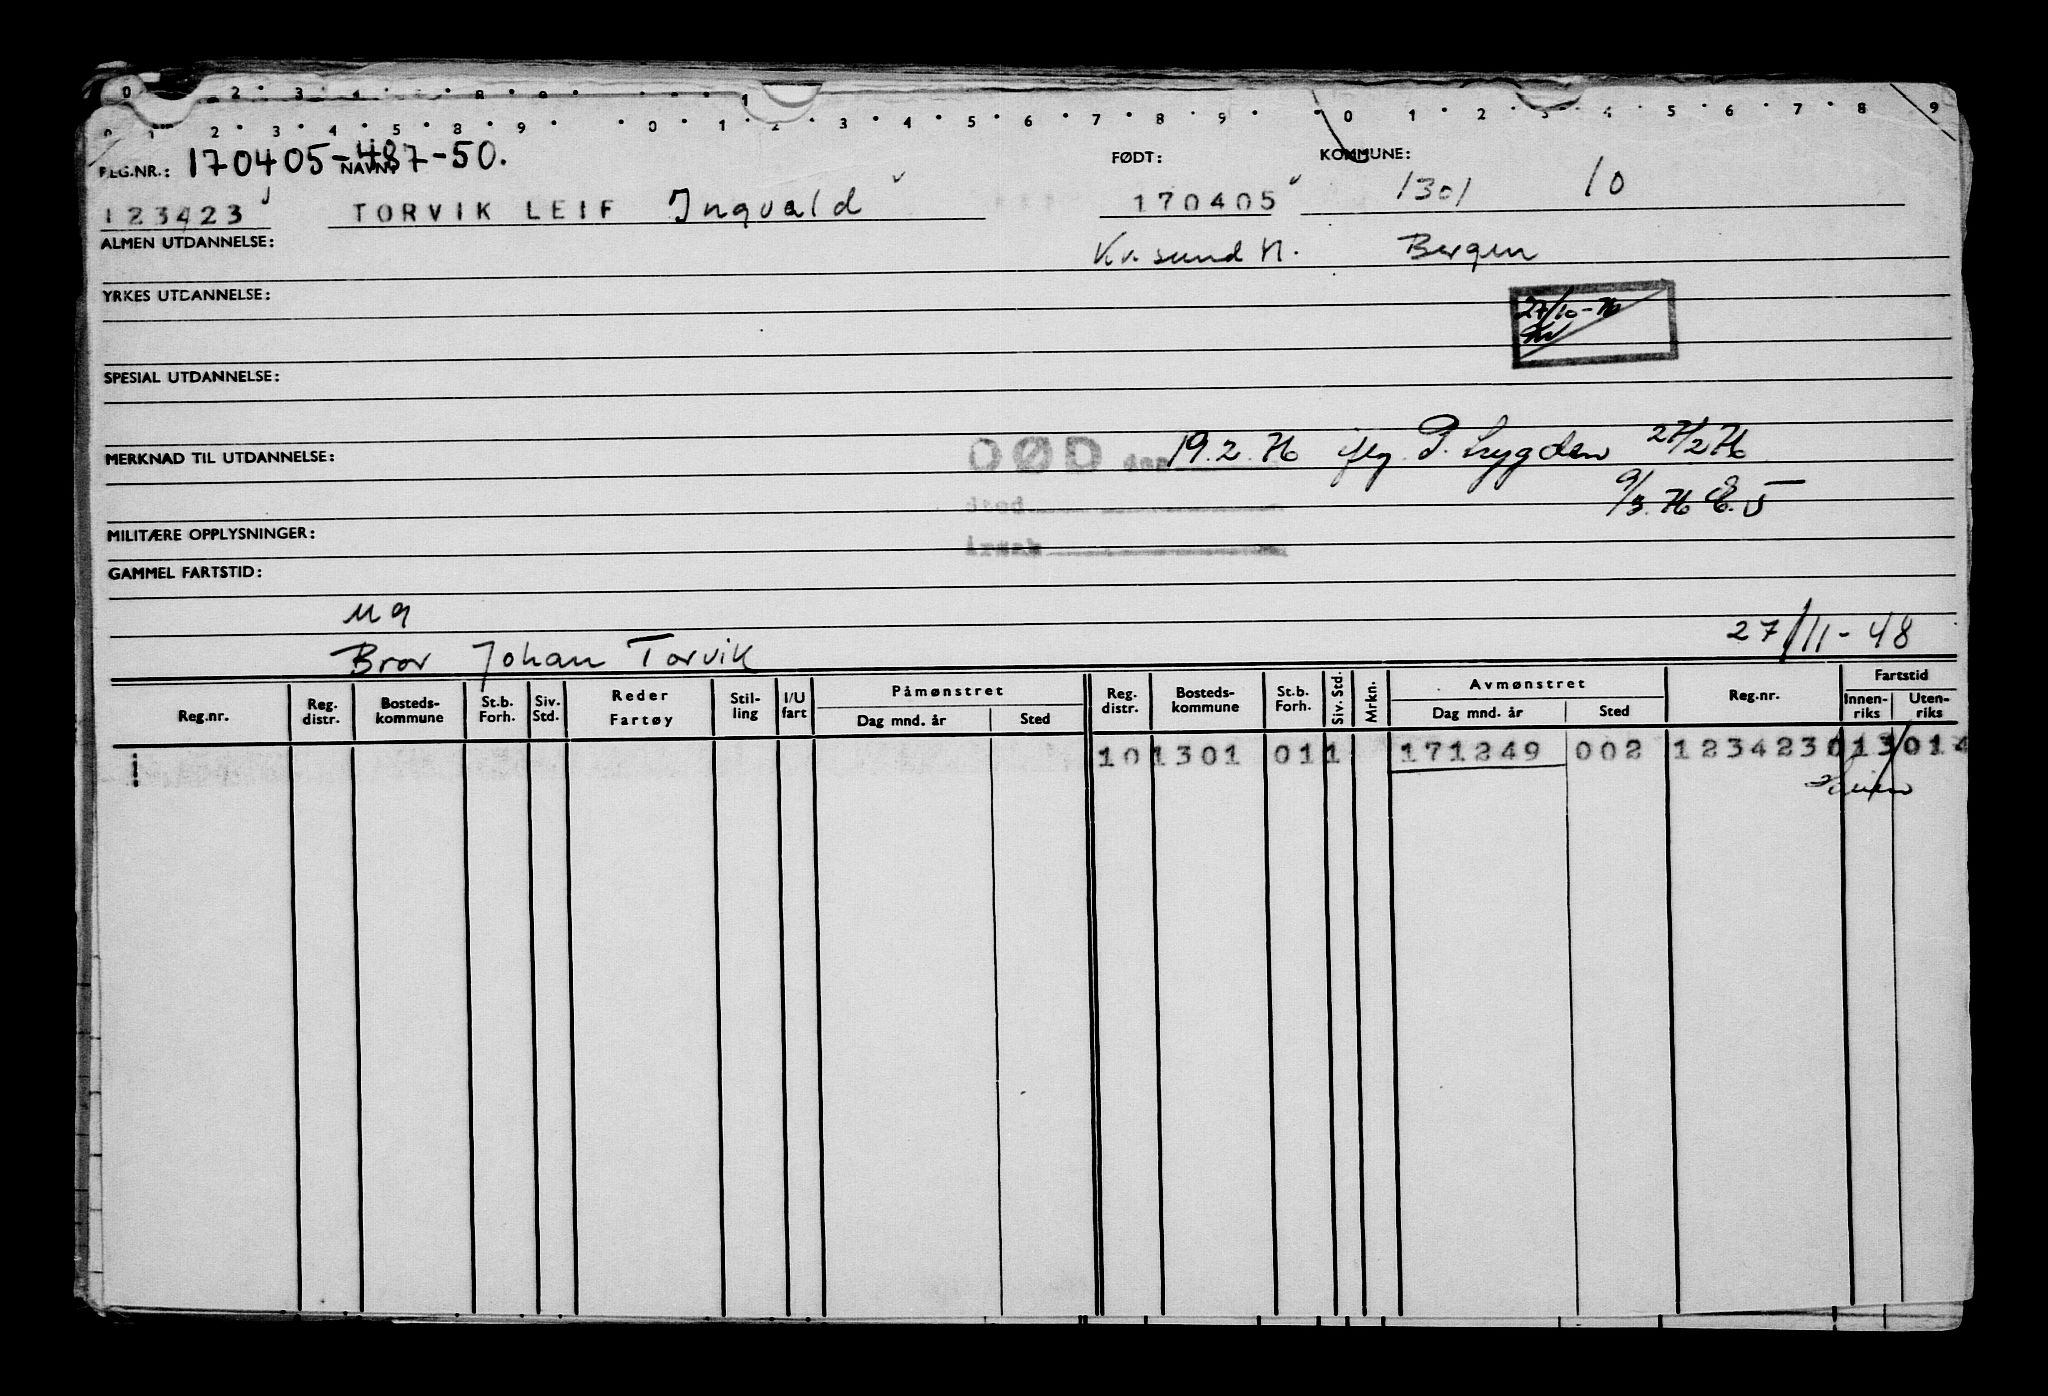 0 2 3 4 8 9 1
1 2 3 4 5 8 9 0 1 2 3 4 5 6 7 8 9 0 1 2 3 4 5 6 7 8 9
REG.NR.: 170405-487-50. NAVN: FØDT: KOMMUNE:
123423 TORVIK LEIF Ingvald 170405 1301 10
ALMEN UTDANNELSE: Kr.sund N. Bergen
YRKES UTDANNELSE:
27/10-76
SPESIAL UTDANNELSE:
DØD den 19.2.76 27/2 76
MERKNAD TIL UTDANNELSE:
9/3.76
MILITÆRE OPPLYSNINGER:
GAMMEL FARTSTID:
ug
Bror Johan Torvik 27/11-48
Reg.nr. Reg. distr. Bosteds- kommune St.b. Forh. Siv. Std. Reder Fartøy Stil- ling I/U fart Påmønstret Dag mnd. år Sted Reg. distr. Bosteds- kommune St.b. Forh. Siv. Std. Mrkn. Avmønstret Dag mnd. år Sted Reg.nr. Fartstid Innen- riks Uten- riks
10 1301 011 171249 002 123423 013 014